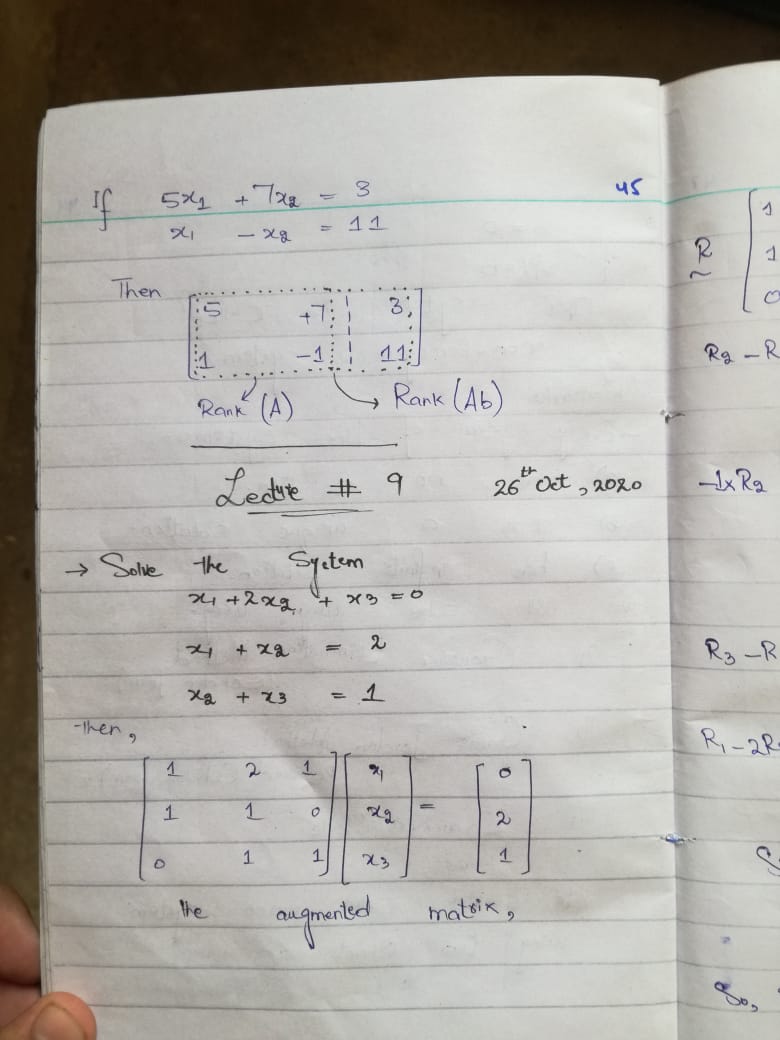 45
If 5x1 + 7x2 = 3
x1 - x2 = 11
Then
[ 5 +7 | 3 ]
[ 1 -1 | 11 ]
Rank (A) Rank (Ab)
Lecture # 9 26th Oct, 2020
→ Solve the System
x1 + 2x2 + x3 = 0
x1 + x2 = 2
x2 + x3 = 1
then,
[ 1 2 1 ] [ x1 ] = [ 0 ]
[ 1 1 0 ] [ x2 ] [ 2 ]
[ 0 1 1 ] [ x3 ] [ 1 ]
the augmented matrix,
1
R 1
~ 0
R2 - R
-1xR2
R3 - R
R1 - 2R
So,